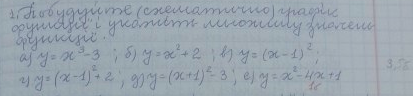 2. Побудуйте (схематично) графік
функції і укажіть множину значень
функції.
а) y = x³-3 ; б) y = x²+2 ; в) y = (x-1)² ;
г) y = (x-1)²+2 ; д) y = (x+1)²-3 ; е) y = x²-4x+1